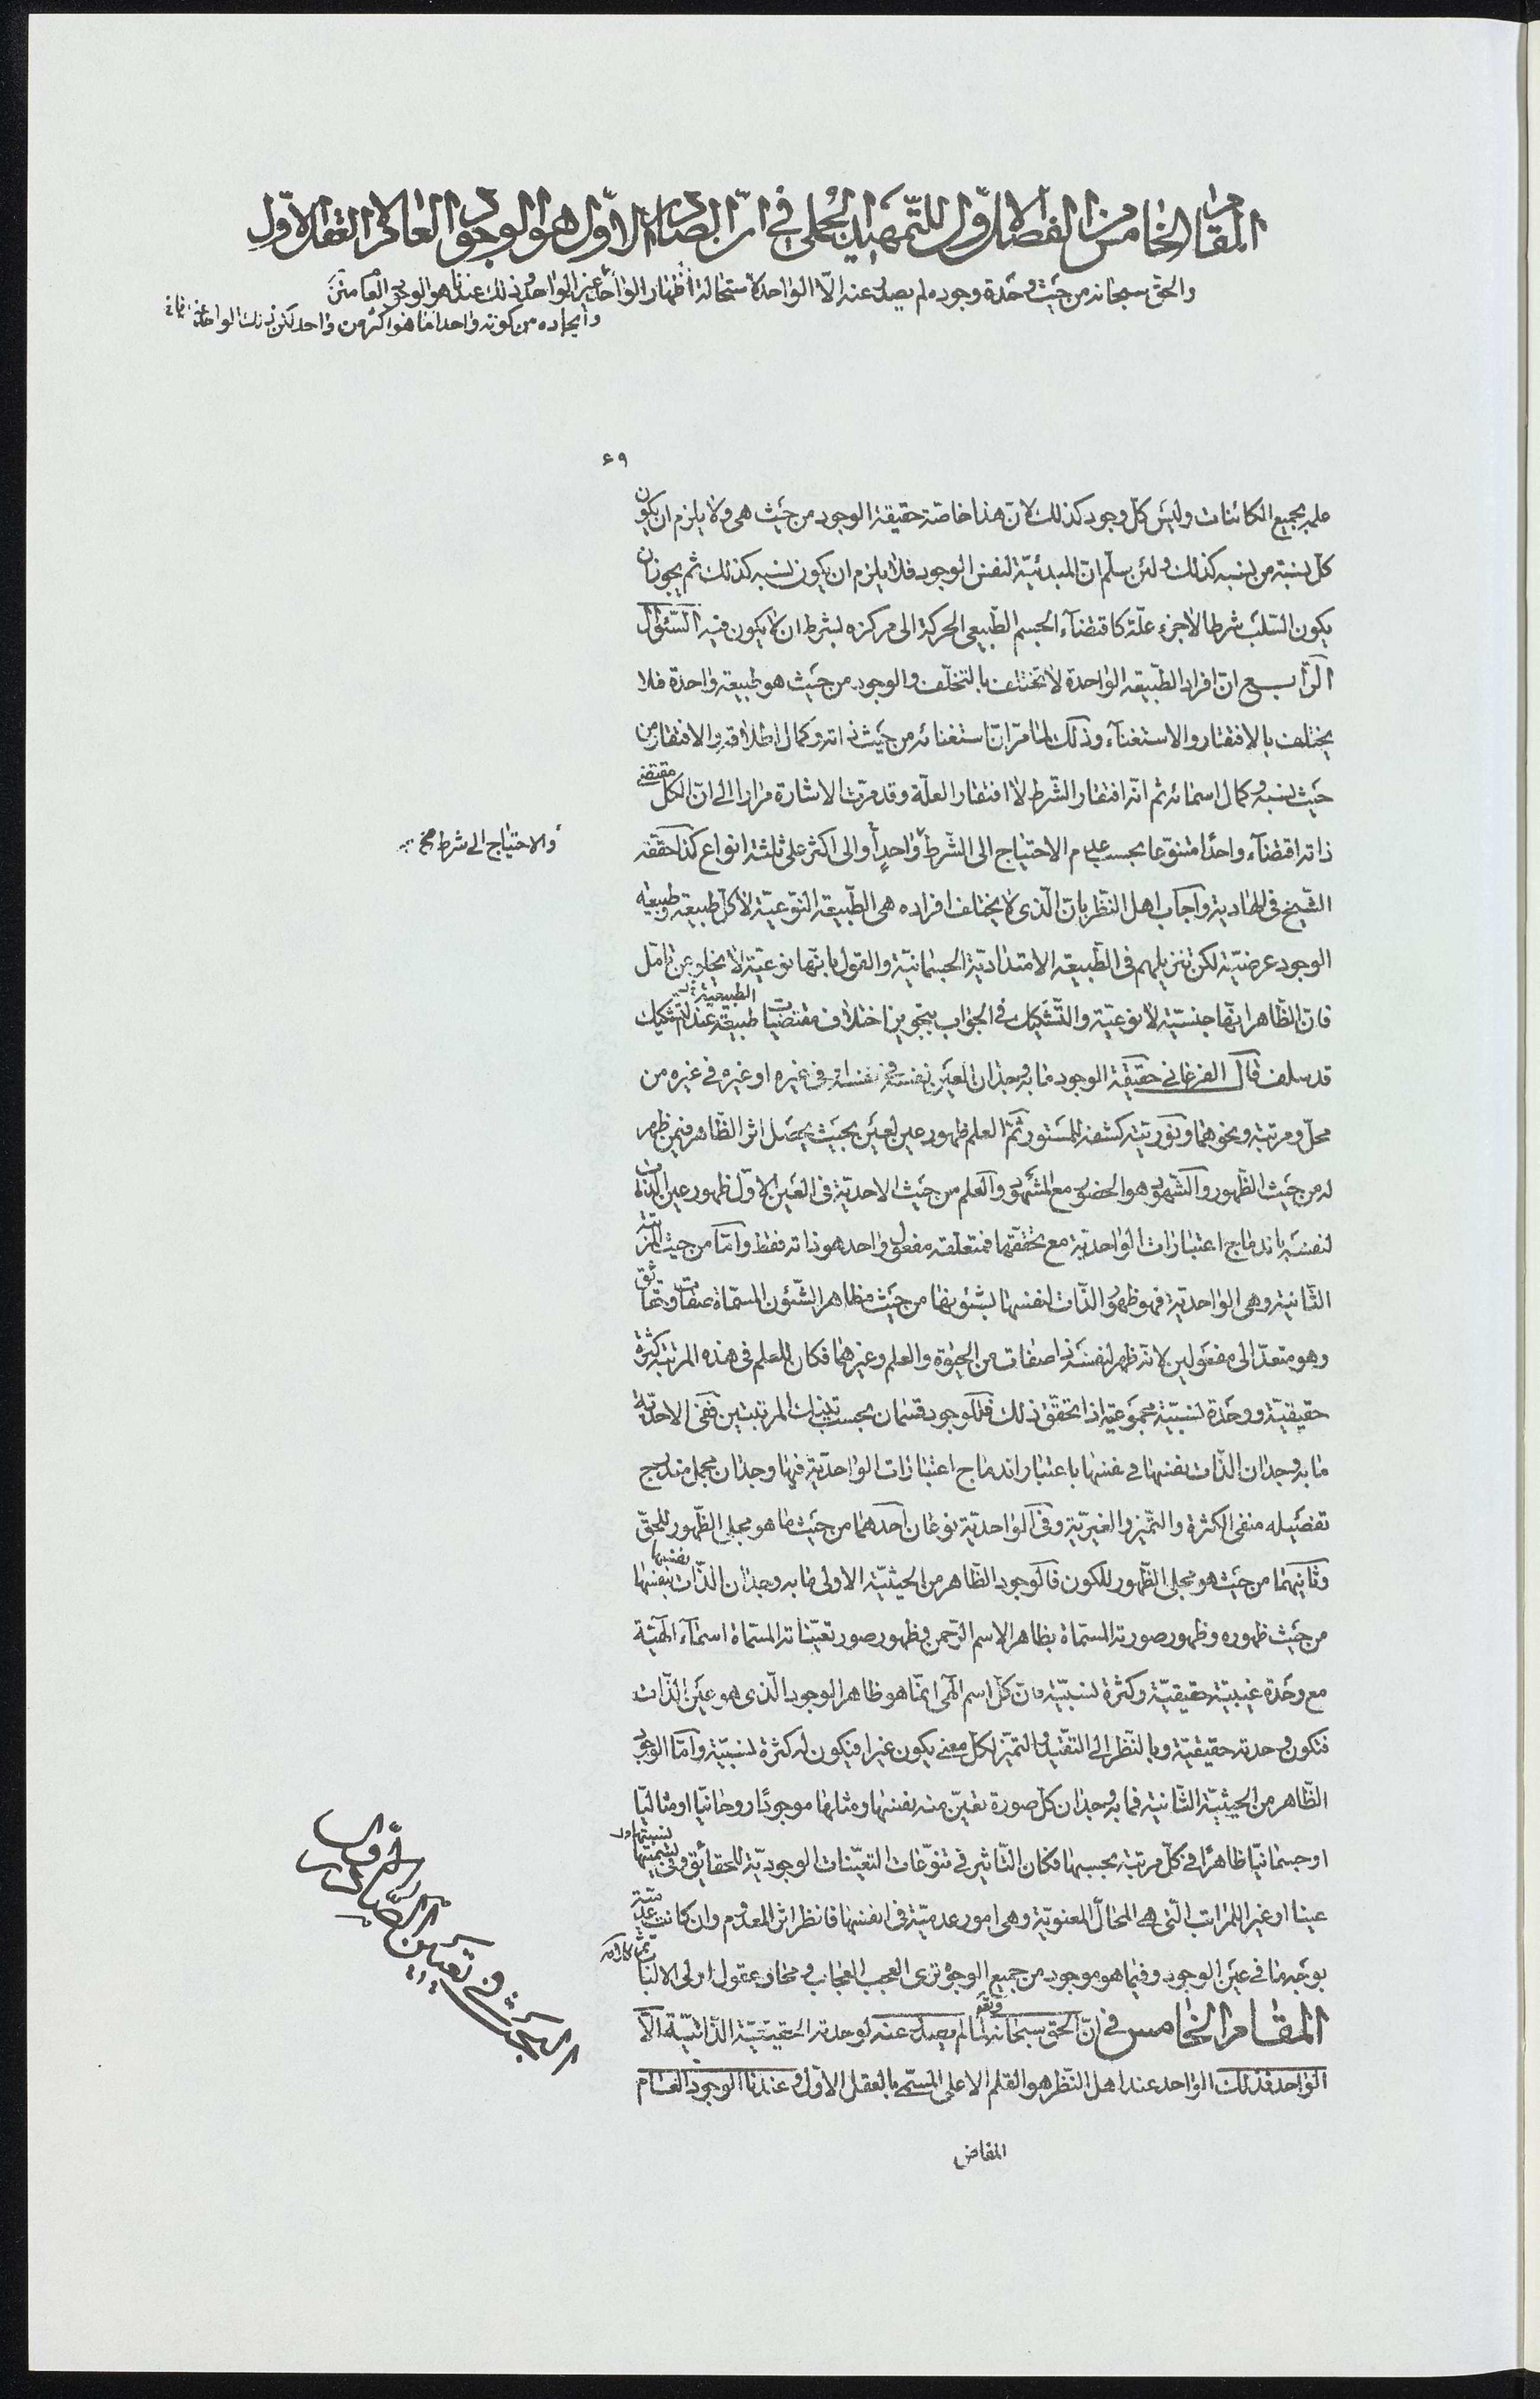 المقام الخامس من الفصل الاول للتمهيد الجملى فى ان الصادر الاول هو الوجود العام لا العقل الاول
والحق سبحانه من حيث وحدة وجوده لم يصدر عنه الا الواحد لاستحالة اظهار الواحد غير الواحد وذلك عندنا هو الوجود العام
وايجاده من كونه واحدا ما هو اكثر من واحد لكن ذلك الواحد عندنا
۶۹
عليه بجميع الكائنات وليس كلّ وجود كذلك لانّ هذا خاصّة حقيقة الوجود من حيث هى ولا يلزم ان يكون
كلّ نسبة من نسبه كذلك ولئن سلّم انّ المبدئيّة لنفس الوجود فلا يلزم ان يكون نسبه كذلك ثم يجوز ان
يكون السّلب شرطا لا جزء علّة كاقتضآء الجسم الطّبيعى الحركة الى مركزه بشرط ان لا يكون فيه السّئوال
الرّابع انّ افراد الطّبيعة الواحدة لا تختلف بالتخلّف والوجود من حيث هو طبيعة واحدة فلا
يختلف بالافتقار والاستغنآء وذلك لما مرّ انّ استغنائه من حيث ذاته وكمال اطلاقه والافتقار من
حيث نسبه وكمال اسمائه ثم انّه افتقار الشّرط لا افتقار العلّة وقد مرّت الاشارة مرارا الى انّ الكل مقتضى
ذاته اقتضآء واحدًا متنوّعا بحسب عدم الاحتياج الى الشّرط واحدٍ او الى اكثر على ثلثة انواع كذا حقّقه
والاحتياج الى شرط
الشّيخ فى الهادية واجاب اهل النّظر بانّ الّذى لا يختلف افراده هى الطّبيعة النّوعيّة لا كلّ طبيعة وطبيعة
الوجود عرضيّة لكن تنزيلهم فى الطّبيعة الامتداديّة الجسمانيّة والقول بانّها نوعيّة لا يخلو عن تامّل
فانّ الظّاهر انّها جنسيّة لا نوعيّة والتّشكيك فى الجواب بتجويز اختلاف مقتضيات طبيعة عند التّشكيك
الطبيعة
قد سلف قال الفرغانى حقيقة الوجود ما به وجدان العين نفسه فى نفسه او فى غيره او غيره فى غيره من
محلّ ومرتبة ونحوهما ونوريّته كشفه للمستور ثمّ العلم ظهور عين لعين بحيث يحصل اثر الظّاهر فيمن ظهر
له من حيث الظّهور والشّهود هو الحضور مع المشهود والعلم من حيث الاحديّة فى التعين الاوّل ظهور عين الذّات
لنفسه باندماج اعتبارات الواحديّة مع تحقّقها فمتعلّقه مفعول واحد هو ذاته فقط وامّا من حيث المرتبة
الثّانية وهى الواحديّة فهو ظهور الذّات لنفسها بشئونها من حيث مظاهر الشّئون المسمّاة صفات وحقائق
وهو متعدّ الى مفعولين لانه ظهر لنفسه ذا صفات من الحيوة والعلم وغيرهما فكان للعلم فى هذه المرتبة كثرة
حقيقيّة ووحدة نسبيّة مجموعيّة اذا تحقّق ذلك فللوجود قسمان بحسب تينك المرتبتين ففى الاحديّة
ما به وجدان الذّات نفسها فى نفسها باعتبار اندماج اعتبارات الواحديّة فيها وجدان مجمل مندرج
تفصيله منفى الكثرة والتّميز والغيريّة وفى الواحديّة نوعان احدهما من حيث ما هو مجلى الظّهور للحقّ
وثانيهما من حيث هو مجلى الظّهور للكون فالوجود الظّاهر من الحيثيّة الاولى ما به وجدان الذّات نفسها بنفسها
من حيث ظهوره وظهور صورته المسمّاة بظاهر الاسم الرّحمن وظهور صور تعيّناته المسمّاة اسمآء الٓهيّة
مع وحدة غيبيّة حقيقيّة وكثرة نسبيّة فانّ كلّ اسم الٓهى انّما هو ظاهر الوجود الّذى هو عين الذّات
فتكون وحدته حقيقيّة وبالنّظر الى التقيّد والتميّز لكلّ معنى يكون غيرا فيكون له كثرة نسبيّة وامّا الوجود
الظّاهر من الحيثيّة الثّانية فما به وجدان كلّ صورة تعيّن منه نفسها ومثلها موجودًا روحانيّا او مثاليّا
او جسمانيّا ظاهرًا فى كلّ مرتبة بحسبها فكان التّاثير فى تنوّعات التعيّنات الوجوديّة للحقائق وفى تسميتها
عينا او غيرا للمراتب الّتى هى المحالّ المعنويّة وهى امور عدميّة فى انفسها فانظر اثر المعدوم وان كانت عدميّة
بوجه ما فى عين الوجود وفيما هو موجود من جميع الوجوه ترى العجب العجاب ومحار عقول اولى الالباب
المقام الخامس فى انّ الحق سبحانه وتعالى لمّا لم يصدر عنه لوحدته الحقيقيّة الذّاتيّة الّا
الواحد فذلك الواحد عند اهل النّظر هو القلم الاعلى المسمّى بالعقل الاوّل وعندنا الوجود العام
البحث فى تعيين الصادر الاول
المفاض